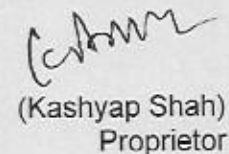 (Kashyap Shah)
Proprietor